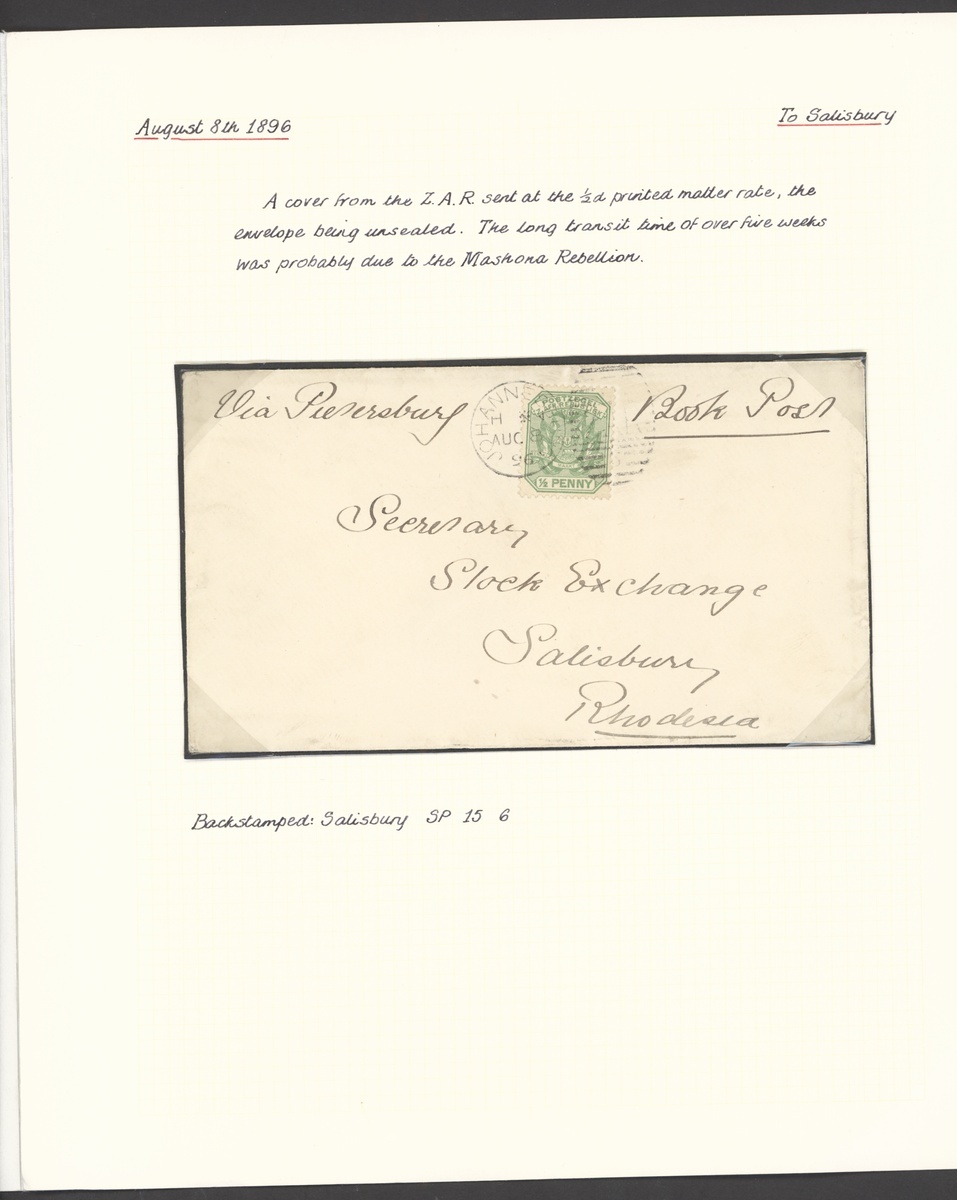 August 8th 1896
To Salisbury
A cover from the Z.A.R. sent at the ½d printed matter rate, the
envelope being unsealed. The long transit time of over five weeks
was probably due to the Mashona Rebellion.
Via Pietersburg
Book Post
JOHANNE
AUG 8
96
POSTZEGEL
½ PENNY
Secretary
Stock Exchange
Salisbury
Rhodesia
Backstamped: Salisbury SP 15 6